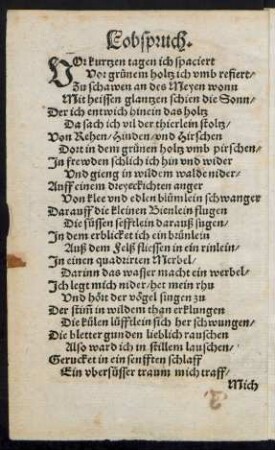 Lobspruch.
VOr kurtzen tagen ich spaciert
Vor grünem holtz ich vmb refiert/
Zu schawen an des Meyen wonn
Mit heissen glantzen schien die Sonn/
Der ich entwich hinein das holtz
Da sach ich vil der thierlein stoltz/
Von Rehen/Hinden/vnd Hirschen
Dort in dem grünen holtz vmb pirschen/
In frewden schlich ich hin vnd wider
Vnd gieng in wildem walde nider/
Auff einem dreyeckichten anger
Von klee vnd edlen blümlein schwanger
Darauff die kleinen Bienlein flugen
Die süssen sefftlein darauß sugen/
In dem erblicket ich ein brünlein
Auß dem Felß fliessen in ein rinlein/
In einen quadrirten Merbel/
Darinn das wasser macht ein werbel/
Ich legt mich nider/het mein rhu
Vnd hört der vögel singen zu
Der stim̃ in wildem than erklungen
Die külen lüfftlein sich her schwungen/
Die bletter gunden lieblich rauschen
Also ward ich in stillem lauschen/
Gerucket in ein senfften schlaff
Ein vbersüsser traum mich traff/
Mich